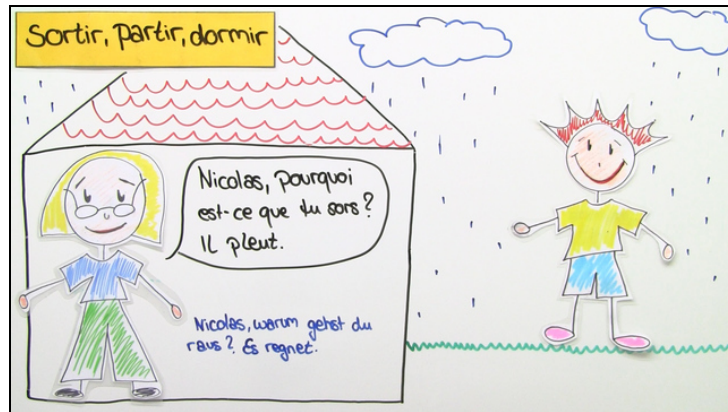 Sortir, partir, dormir
Nicolas, pourquoi
est-ce que tu sors?
Il pleut.
Nicolas, warum gehst du
raus? Es regnet.